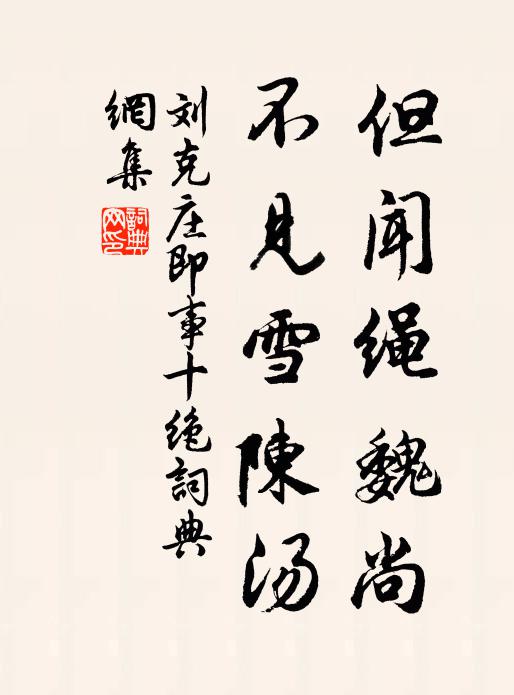 但闻绳魏尚
不见雪陳汤
刘克庄即事十绝詞典
網集
詞典
网印